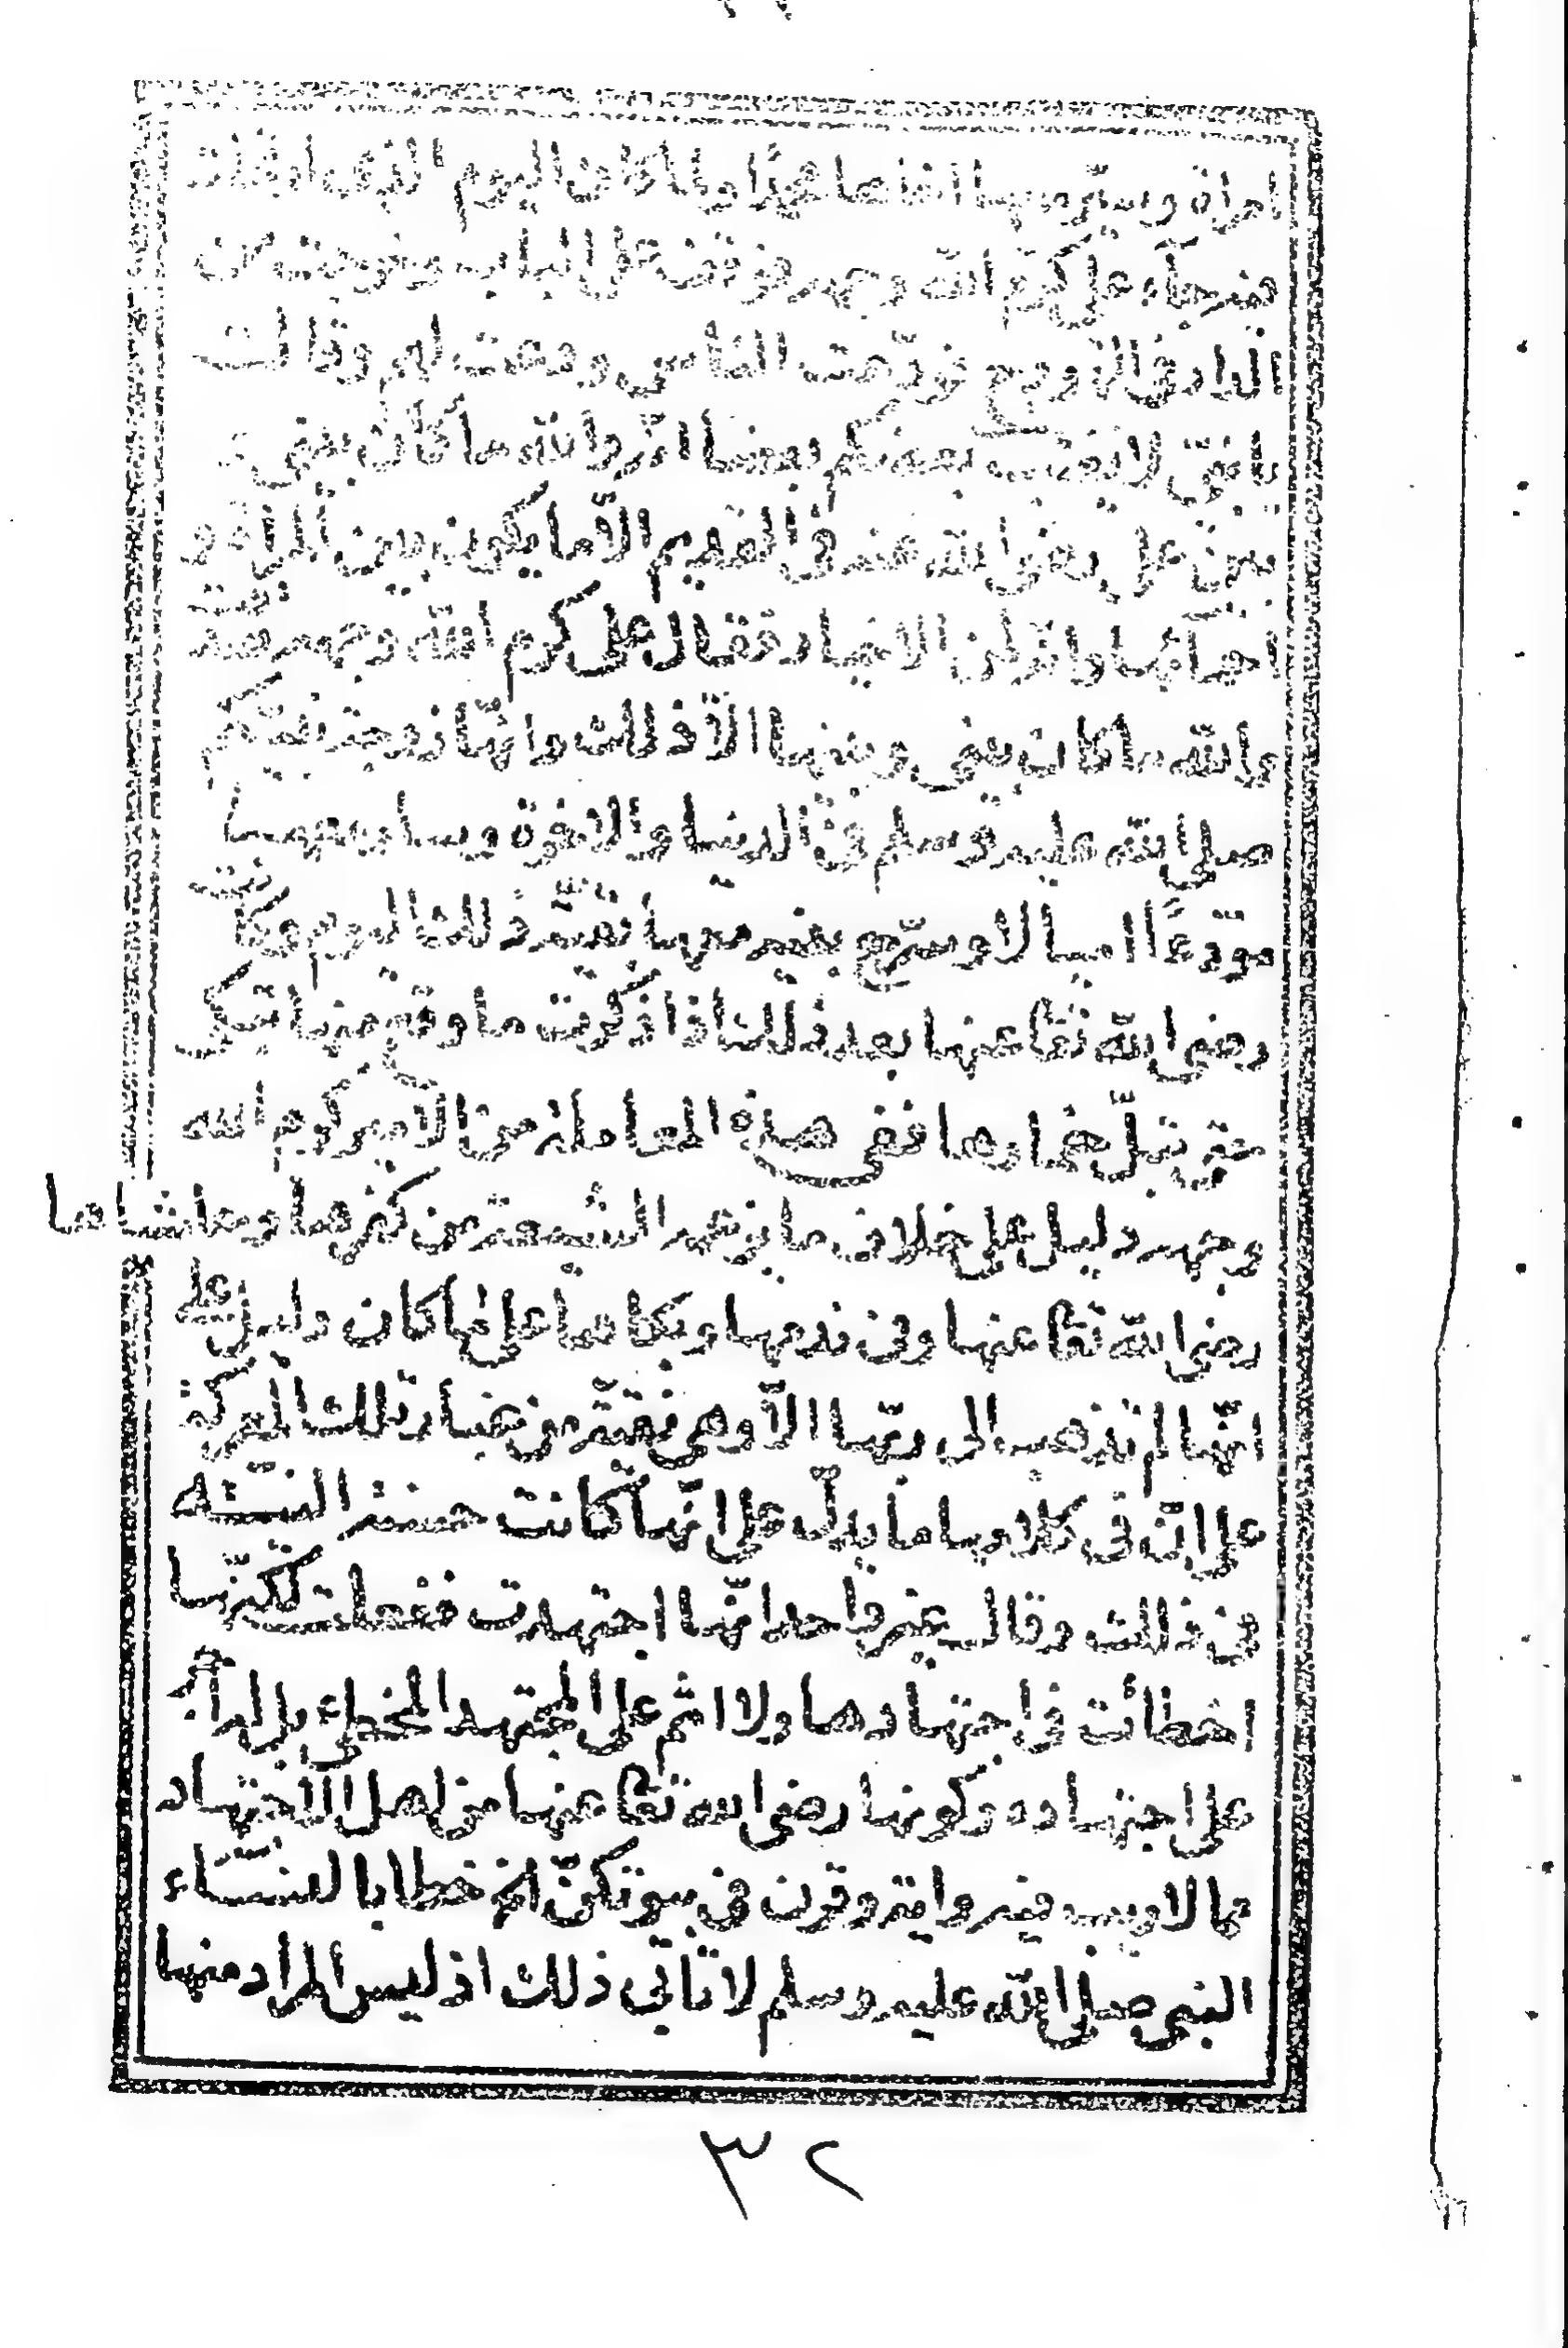 امراة وسيّر معها اخاها محمّدا ولما كان اليوم الذى ارتحلت
فيه جاء على كرم الله وجهه فوقف على الباب وخرجت من
الدار فى الهودج فودّعت الناس ودعت لهم وقالت
يا بنىّ لا يعتب بعضكم بعضا انّه والله ما كان بينى و
بين على رضى الله عنه فى القديم الّا ما يكون بين المرأة و
احمائها وانّه لمن الاخيار فقال على كرم الله وجهه صدقت
والله ما كان بينى وبينها الّا ذلك وانّها زوجة نبيّكم
صلى الله عليه وسلم فى الدنيا والاخرة وسار معها
مودّعا اميالا وسرّح بنيه معها بقيّة ذلك اليوم وكانت
رضى الله تعا عنها بعد ذلك اذا ذكرت ما وقع منها تبكى
حتى تبلّ خمارها ففى هذه المعاملة من الامير كرم الله
وجهه دليل على خلاف ما يزعمه الشيعة من كفرها وحاشاها
رضى الله تعا عنها وفى ندمها وبكائها على ما كان دليل على
انّها لم تذهب الى ربّها الّا وهى نقيّة من غبار تلك المعركة
على انّ فى كلامها ما يدلّ على انّها كانت حسنة النيّة
فى ذلك وقال غير واحد انّها اجتهدت ففعلت لكنّها
اخطأت فى اجتهادها ولا اثم على المجتهد المخطئ بل له اجر
على اجتهاده وكونها رضى الله تعا عنها من اهل الاجتهاد
مما لا ريب فيه واية وقرن فى بيوتكنّ انه خطابا لنساء
النبى صلى الله عليه وسلم لا تأتى ذلك اذ ليس المراد منها
٣٢